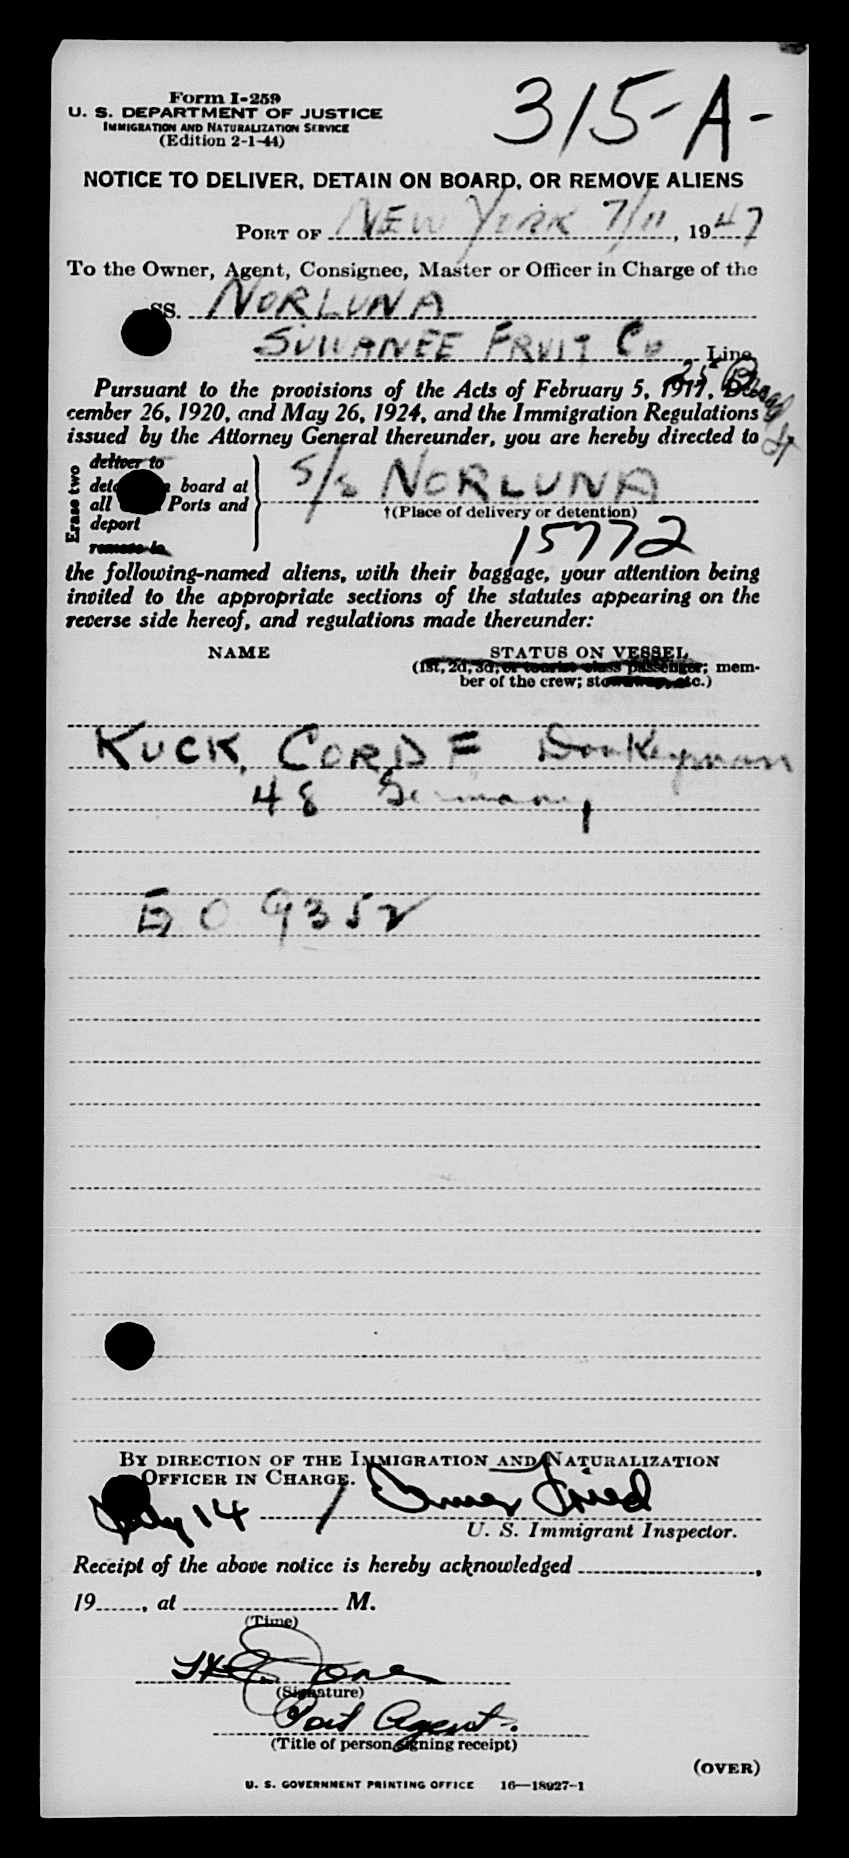 Form I-259
U. S. DEPARTMENT OF JUSTICE
IMMIGRATION AND NATURALIZATION SERVICE
(Edition 2-1-44)
315-A-
NOTICE TO DELIVER, DETAIN ON BOARD, OR REMOVE ALIENS
PORT OF NEW YORK 7/11, 1947
To the Owner, Agent, Consignee, Master or Officer in Charge of the
SS. NORLUNA
SUWANEE FRUIT Co Line
25 Broad St
Pursuant to the provisions of the Acts of February 5, 1917, De-
cember 26, 1920, and May 26, 1924, and the Immigration Regulations
issued by the Attorney General thereunder, you are hereby directed to
Erase two
deliver to
board at
all Ports and
deport
remove to
S/S NORLUNA
†(Place of delivery or detention)
15772
the following-named aliens, with their baggage, your attention being
invited to the appropriate sections of the statutes appearing on the
reverse side hereof, and regulations made thereunder:
NAME STATUS ON VESSEL
(1st, 2d, 3d, or tourist class passenger; mem-
ber of the crew; stowaway, etc.)
KUCK, CORD F Donkeyman
48 Germany
EO 9352
BY DIRECTION OF THE IMMIGRATION AND NATURALIZATION
OFFICER IN CHARGE.
July 14 /
U. S. Immigrant Inspector.
Receipt of the above notice is hereby acknowledged ,
19 , at M.
(Time)
(Signature)
Port Agent.
(Title of person signing receipt)
(OVER)
U. S. GOVERNMENT PRINTING OFFICE 16—18927-1